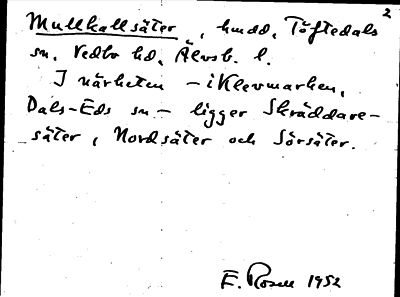 2
Mullkallsäter, hmdd, Töftedals
sn, Vedbo hd, Älvsb. l.
I närheten – i Klevmarken,
Dals-Eds sn – ligger Skräddare-
säter, Nordsäter och Sörsäter.
E. Rosell 1952